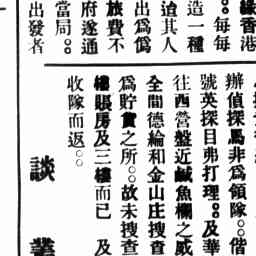 緣香港
。。每每
造一種
遠其人
出爲僞
旅費不
府遂通
當局。。
出發者
辦偵探馬非爲領隊。。偕
號英探目弗打理。。及華
往西營盤近鹹魚欄之威
全間德綸和金山庄搜查
爲貯貨之所。。故未搜查
樓賬房及三樓而已 及
收隊而返。。
談 叢